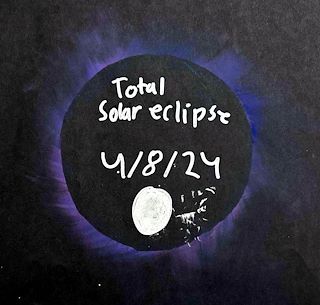 Total
Solar eclipse
4/8/24